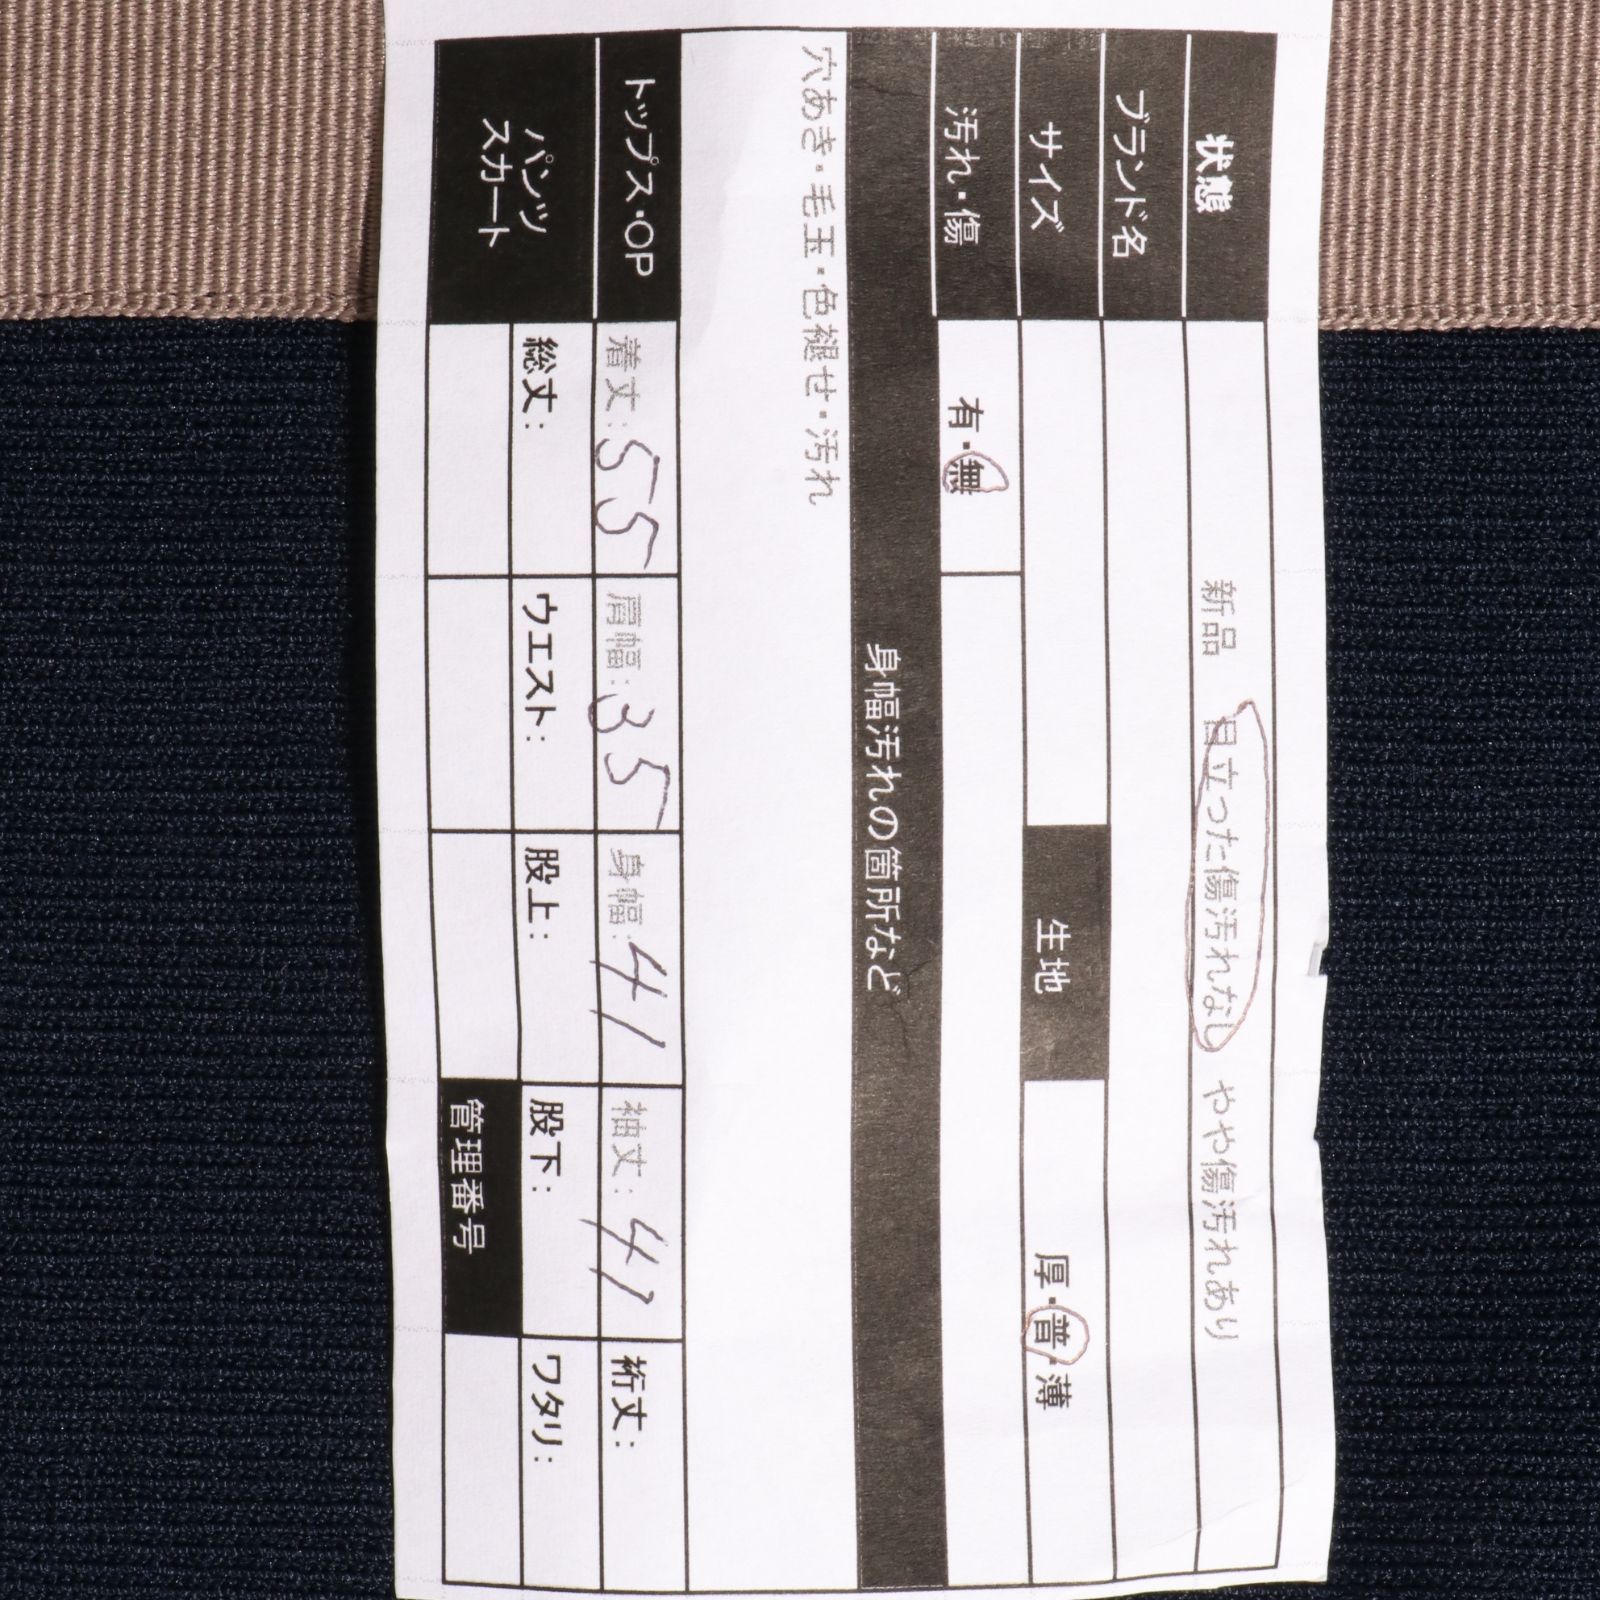 状態 新品 目立った傷汚れなし やや傷汚れあり
ブランド名
サイズ 生地 厚・普・薄
汚れ・傷 有・無
身幅汚れの箇所など
穴あき・毛玉・色褪せ・汚れ
トップス・OP 着丈:55 肩幅:35 身幅:41 袖丈:41 裄丈:
パンツ スカート 総丈: ウエスト: 股上: 股下: ワタリ:
管理番号